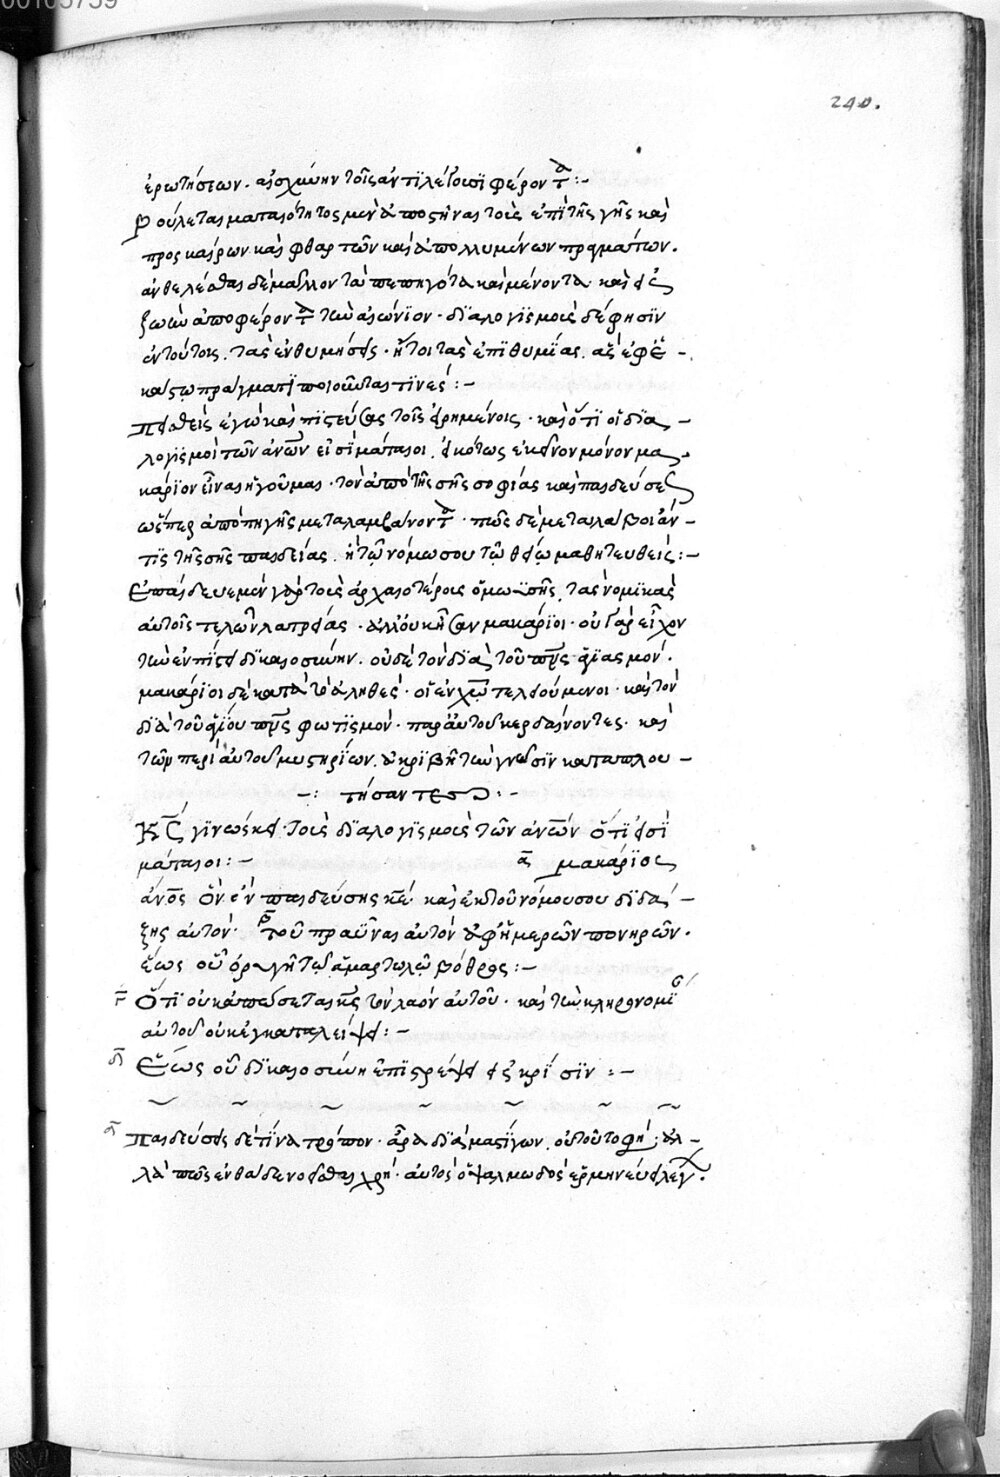 00105759
240.
ἐρωτήσεων. αἰσχύνην τοῖς ἀντιλέγουσι φέροντα:-
Βούλεται ματαιότητος μὲν ἀποστῆναι τοὺς ἐπὶ τῆς γῆς καὶ
προσκαίρων καὶ φθαρτῶν καὶ ἀπολλυμένων πραγμάτων.
ἀνθελέσθαι δὲ μᾶλλον τὰ πεπηγότα καὶ μένοντα καὶ εἰς
ζωὴν ἀποφέροντα τὴν αἰώνιον. διαλογισμοὺς δέ φησιν
ἐν τούτοις. τὰς ἐνθυμήσεις. ἤτοι τὰς ἐπιθυμίας. ἃς ἐφ' ἑ-
κάστῳ πράγματι ποιοῦνται τινές:-
πεισθεὶς ἐγὼ καὶ πιστεύσας τοῖς εἰρημένοις. καὶ ὅτι οἱ δια-
λογισμοὶ τῶν ἀνων εἰσὶ μάταιοι. εἰκότως ἐκεῖνον μόνον μα-
κάριον εἶναι ἡγοῦμαι. τὸν ἀπὸ τῆς σῆς σοφίας καὶ παιδεύσεως
ὥσπερ ἀπὸ πηγῆς μεταλαμβάνοντα. πῶς δὲ μεταλάβοι ἄν
τις τῆς σῆς παιδείας. ἢ τῷ νόμῳ σου τῷ θείῳ μαθητευθείς:-
Ἐπαίδευε μὲν γὰρ τοὺς ἀρχαιοτέρους ὁ μωϋσῆς, τὰς νομικὰς
αὐτοῖς τελῶν λατρείας. ἀλλ' οὐκ ἦσαν μακάριοι. οὐ γὰρ εἶχον
τὴν ἐν πίστει δικαιοσύνην. οὐδὲ τὸν διὰ τοῦ πνς ἁγιασμόν.
μακάριοι δὲ κατὰ τὸ ἀληθές. οἱ ἐν χω τελούμενοι. καὶ τὸν
διὰ τοῦ ἁγίου πνς φωτισμόν. παρ' αὐτοῦ κερδαίνοντες. καὶ
τῶν περὶ αὐτοῦ μυστηρίων. ἀκριβῆ τὴν γνῶσιν καταπλου-
-: τήσαντες:-
Κς γινώσκει τοὺς διαλογισμοὺς τῶν ἀνων ὅτι εἰσὶ
μάταιοι:- α μακάριος
ἄνος ὃν ἐὰν παιδεύσῃς κε. καὶ ἐκ τοῦ νόμου σου διδά-
ξῃς αὐτόν. β τοῦ πραῦναι αὐτὸν ἀφ' ἡμερῶν πονηρῶν.
ἕως οὗ ὀρυγῇ τῷ ἁμαρτωλῷ βόθρος:-
γ Ὅτι οὐκ ἀπώσεται κς τὸν λαὸν αὐτοῦ. καὶ τὴν κληρονομίαν
αὐτοῦ οὐκ ἐγκαταλείψει:-
δ Ἕως οὗ δικαιοσύνη ἐπιστρέψει εἰς κρίσιν:-
α Παιδεύσεις δὲ τίνα τρόπον. ἆρα διὰ μαστίγων. οὐ τοῦτο φησι. ἀλ-
λὰ πῶς ἐνθάδε νοεῖσθαι χρή. αὐτὸς ὁ ψαλμωδὸς ἑρμηνεύει λέγων.